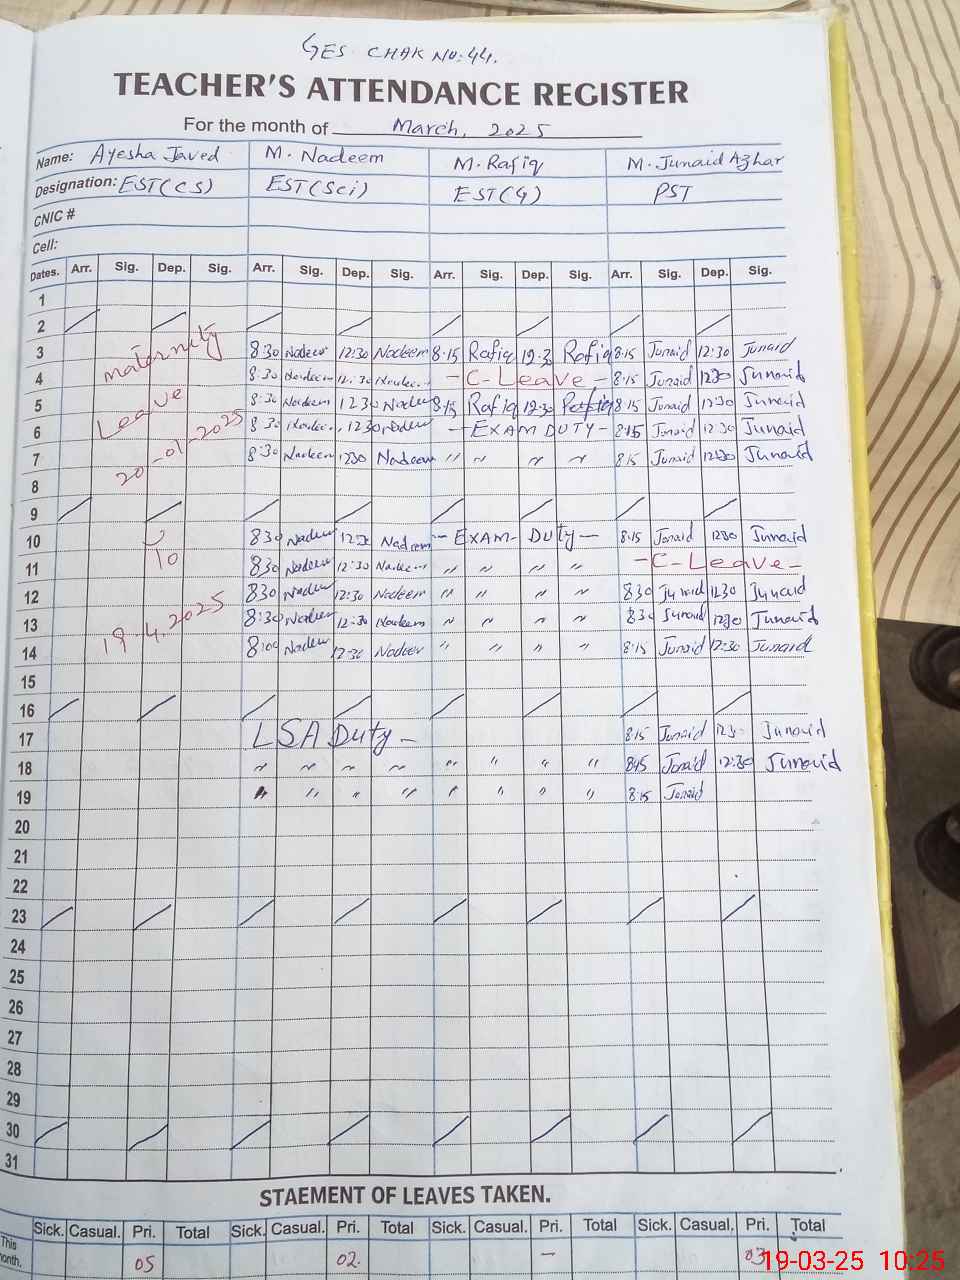 GES CHAK NO: 44.
TEACHER'S ATTENDANCE REGISTER
For the month of March, 2025
Name: Ayesha Javed M. Nadeem M. Rafiq M. Junaid Azhar
Designation: EST(CS) EST(Sci) EST(G) PST
CNIC #
Cell:
Dates. Arr. Sig. Dep. Sig. Arr. Sig. Dep. Sig. Arr. Sig. Dep. Sig. Arr. Sig. Dep. Sig.
1
2
3 maternity 8:30 Nadeem 12:30 Nadeem 8:15 Rafiq 12:3 Rafiq 8:15 Junaid 12:30 Junaid
4 8:30 Nadeem 12:30 Nadeem - C - Leave - 8:15 Junaid 1230 Junaid
5 Leave 8:30 Nadeem 1230 Nadeem 8:15 Rafiq 12:30 Rafiq 8:15 Junaid 12:30 Junaid
6 8:30 Nadeem 12:30 Nadeem - EXAM DUTY - 8:15 Junaid 12:30 Junaid
7 20-01-2025 8:30 Nadeem 1230 Nadeem " " " " 8:15 Junaid 12:30 Junaid
8
9
10 830 Nadeem 12:30 Nadeem - EXAM - Duty - 8:15 Junaid 1230 Junaid
11 To 830 Nadeem 12:30 Nadeem " " " " - C - Leave -
12 830 Nadeem 12:30 Nadeem " " " " 830 Junaid 1230 Junaid
13 19.4.2025 8:30 Nadeem 12:30 Nadeem " " " " 830 Junaid 1230 Junaid
14 8:00 Nadeem 12:30 Nadeem " " " " 8:15 Junaid 12:30 Junaid
15
16
17 LSA Duty - 8:15 Junaid 12:30 Junaid
18 " " " " " " " " 8:15 Junaid 12:30 Junaid
19 " " " " " " " " 8:15 Junaid
20
21
22
23
24
25
26
27
28
29
30
31
STAEMENT OF LEAVES TAKEN.
Sick. Casual. Pri. Total Sick. Casual. Pri. Total Sick. Casual. Pri. Total Sick. Casual. Pri. Total
This
month. 05 02. - 03
19-03-25 10:25